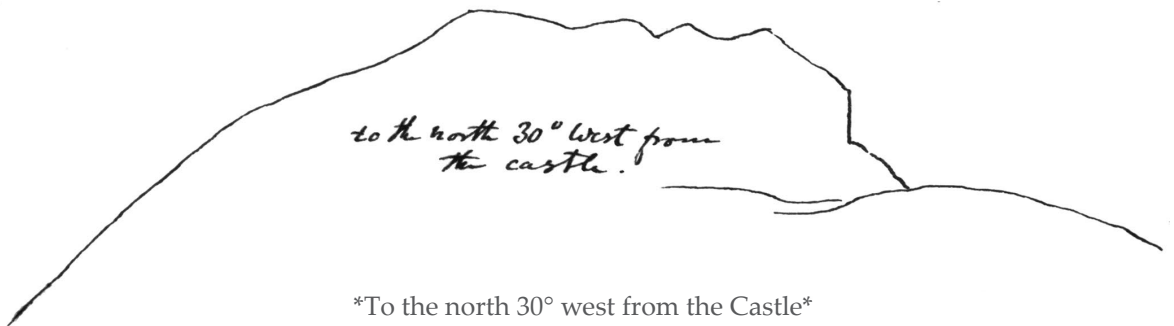 to the north 30° West from
the castle.
*To the north 30° west from the Castle*